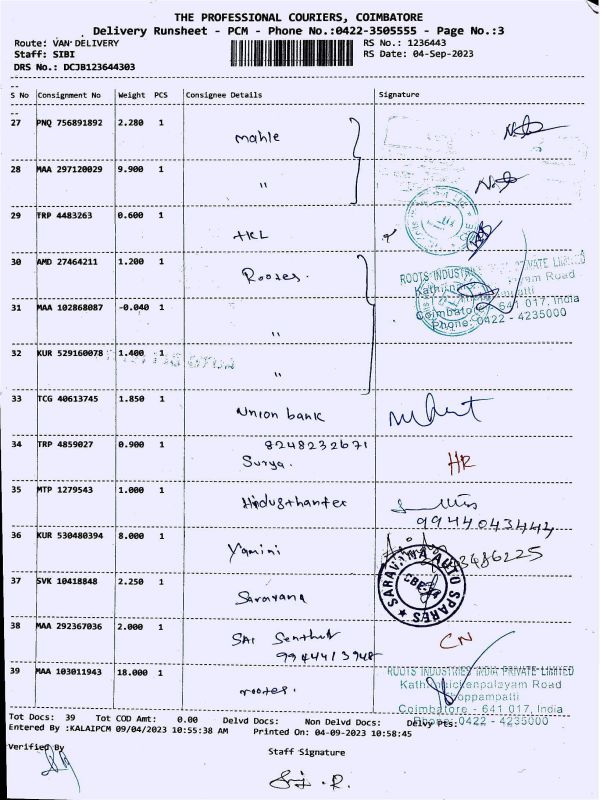 THE PROFESSIONAL COURIERS, COIMBATORE
Delivery Runsheet - PCM - Phone No.:0422-3505555 - Page No.:3
Route: VAN DELIVERY RS No.: 1236443
Staff: SIBI RS Date: 04-Sep-2023
DRS No.: DCJB123644303
S No Consignment No Weight PCS Consignee Details Signature
27 PNQ 756891892 2.280 1
Mahle
28 MAA 297120029 9.900 1
"
29 TRP 4483263 0.600 1
TKL
30 AMD 27464211 1.200 1
Rootes.
ROOTS INDUSTRIES PRIVATE LIMITED
Road
31 MAA 102868087 -0.040 1
Coimbatore - 641 017, India
Phone: 0422 - 4235000
"
32 KUR 529160078 1.400 1
"
33 TCG 40613745 1.850 1
Union bank
34 TRP 4859027 0.900 1
8248232671
Surya.
HR
35 MTP 1279543 1.000 1
Hindusthantex
9944043444
36 KUR 530480394 8.000 1
Yamini
SARAVANA AUTO SPARES
CBE-
37 SVK 10418848 2.250 1
Saravana
38 MAA 292367036 2.000 1
SAI Senthur
CN
39 MAA 103011943 18.000 1
ROOTS INDUSTRIES INDIA PRIVATE LIMITED
Road
Thoppampatti
Coimbatore - 641 017, India
Phone: 0422 - 4235000
rootes.
Tot Docs: 39 Tot COD Amt: 0.00 Delvd Docs: Non Delvd Docs: Delvy Pts:
Entered By :KALAIPCM 09/04/2023 10:55:38 AM Printed On: 04-09-2023 10:58:45
Verified By
Staff Signature